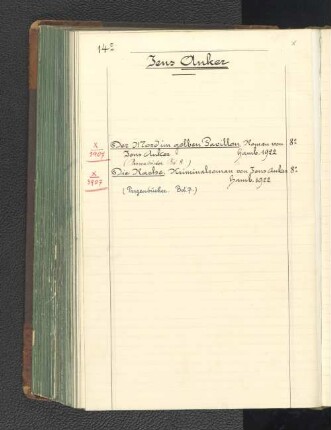 14²
Jens Anker
x
3907
Der Mord im gelben Pavillon. Roman von 8º
Jens Anker Hamb. 1922
Bd. 8.)
x
3907
Die Maske. Kriminalroman von Jens Anker 8º
Hamb. 1922
Bd. 7.)